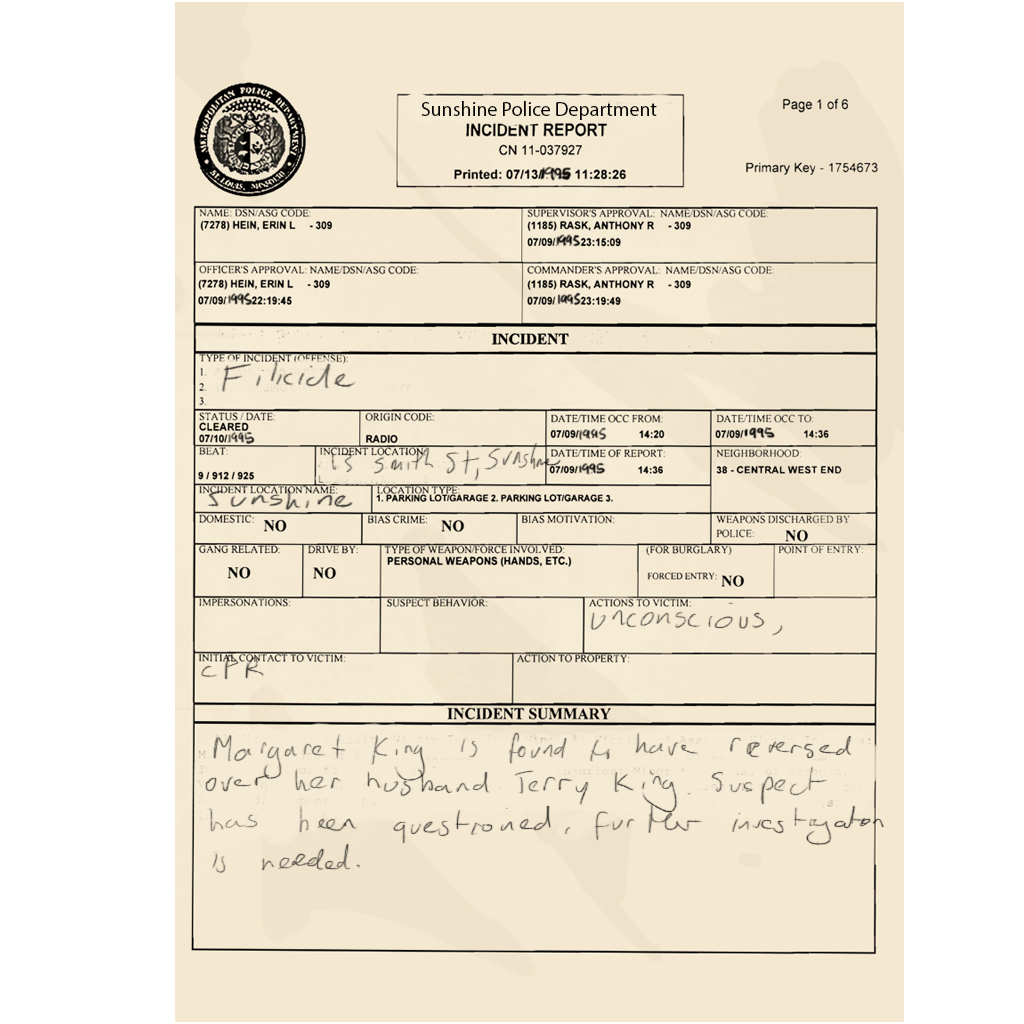 METROPOLITAN POLICE DEPARTMENT
ST. LOUIS, MISSOURI
Sunshine Police Department
INCIDENT REPORT
CN 11-037927
Printed: 07/13/1995 11:28:26
Page 1 of 6
Primary Key - 1754673
NAME: DSN/ASG CODE:
(7278) HEIN, ERIN L - 309
SUPERVISOR'S APPROVAL: NAME/DSN/ASG CODE:
(1185) RASK, ANTHONY R - 309
07/09/1995 23:15:09
OFFICER'S APPROVAL: NAME/DSN/ASG CODE:
(7278) HEIN, ERIN L - 309
07/09/1995 22:19:45
COMMANDER'S APPROVAL: NAME/DSN/ASG CODE:
(1185) RASK, ANTHONY R - 309
07/09/1995 23:19:49
INCIDENT
TYPE OF INCIDENT (OFFENSE):
1.
2. Filicide
3.
STATUS / DATE:
CLEARED
07/10/1995
ORIGIN CODE:
RADIO
DATE/TIME OCC FROM:
07/09/1995 14:20
DATE/TIME OCC TO:
07/09/1995 14:36
BEAT:
9 / 912 / 925
INCIDENT LOCATION:
13 Smith St, Sunshine
DATE/TIME OF REPORT:
07/09/1995 14:36
NEIGHBORHOOD:
38 - CENTRAL WEST END
INCIDENT LOCATION NAME:
Sunshine
LOCATION TYPE:
1. PARKING LOT/GARAGE 2. PARKING LOT/GARAGE 3.
DOMESTIC: NO
BIAS CRIME: NO
BIAS MOTIVATION:
WEAPONS DISCHARGED BY
POLICE: NO
GANG RELATED:
NO
DRIVE BY:
NO
TYPE OF WEAPON/FORCE INVOLVED:
PERSONAL WEAPONS (HANDS, ETC.)
(FOR BURGLARY)
FORCED ENTRY: NO
POINT OF ENTRY:
IMPERSONATIONS:
SUSPECT BEHAVIOR:
ACTIONS TO VICTIM:
unconscious,
INITIAL CONTACT TO VICTIM:
CPR
ACTION TO PROPERTY:
INCIDENT SUMMARY
Margaret King is found to have reversed
over her husband Terry King. Suspect
has been questioned, further investigation
is needed.